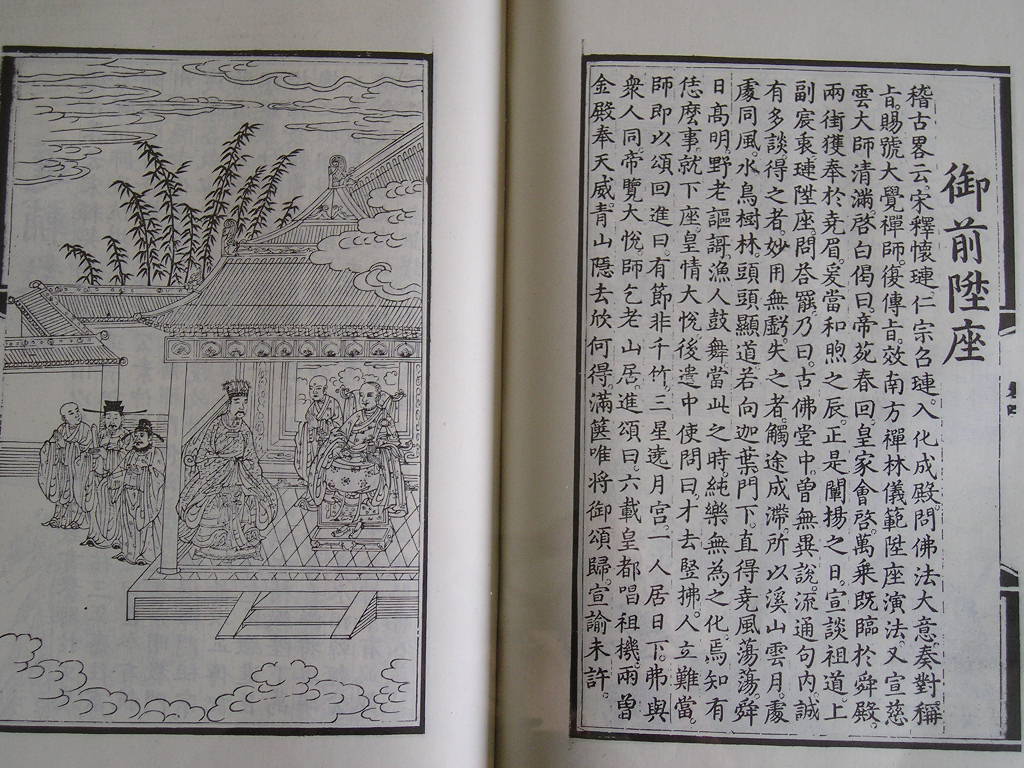 御前陞座
稽古畧云。宋釋懷璉仁宗召璉。入化成殿。問佛法大意。奏對稱
旨。賜號大覺禪師。復傳旨。效南方禪林儀範陞座演法。又宣慈
雲大師清滿。啓白偈曰。帝苑春回。皇家會啓。萬乘既臨於舜殿。
兩街獲奉於堯眉。爰當和煦之辰。正是闡揚之日。宣談祖道。上
副宸衷。璉陞座。問荅罷。乃曰。古佛堂中。曾無異說。流通句內。誠
有多談。得之者。妙用無虧。失之者。觸途成滯。所以溪山雲月。處
處同風。水鳥樹林。頭頭顯道。若向迦葉門下。直得堯風蕩蕩。舜
日高明。野老謳謌。漁人鼓舞。當此之時。純樂無為之化。焉知有
恁麼事。就下座。皇情大悅。後遣中使問曰。才去竪拂。人立難當。
師即以頌回進曰。有節非千竹。三星遶月宮。一人居日下。弗與
衆人同。帝覽大悅。師乞老山居。進頌曰。六載皇都唱祖機。兩曾
金殿奉天威。青山隱去欣何得。滿篋唯將御頌歸。宣諭未許。